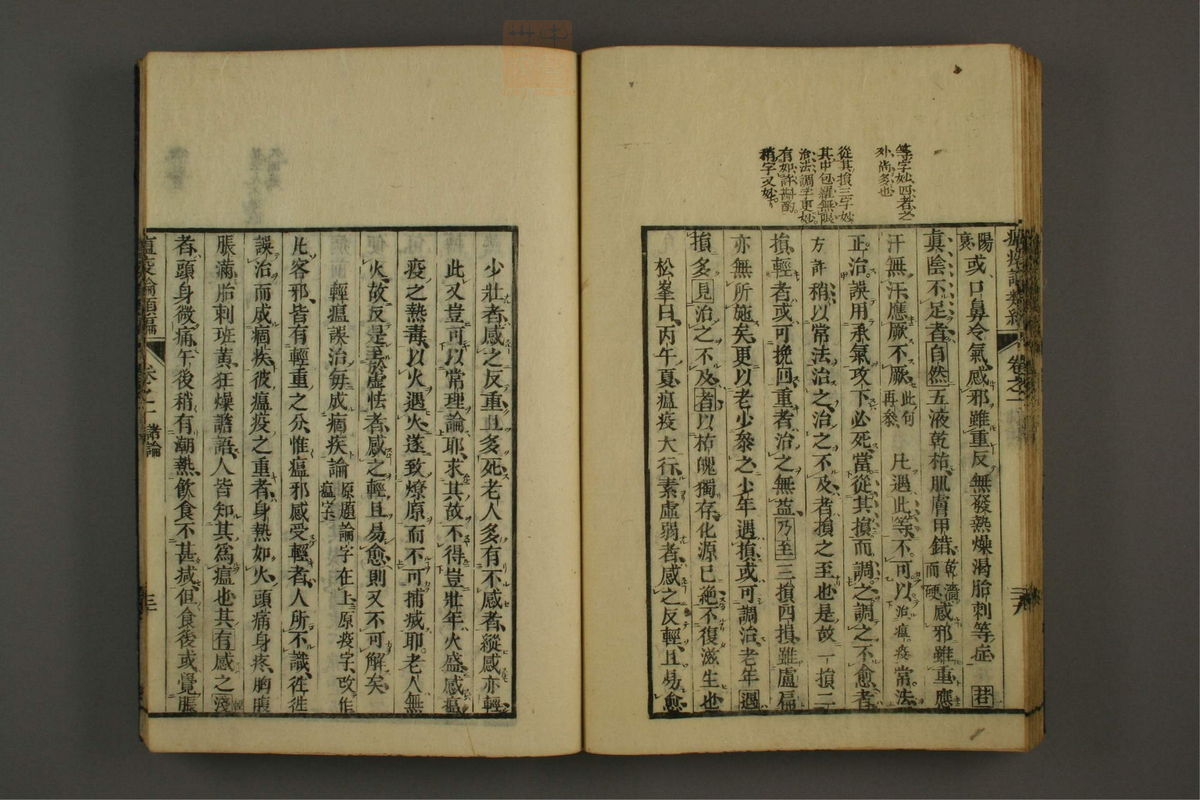 等字妙四者之
外尚多也
從其損三字妙
其中包羅無限
治法調字更妙
有如許斟酌
稍字又妙
瘟疫論類編 卷之二
陽衰或口鼻冷氣感邪雖重反無發熱燥渴胎刺等症若
眞陰不足者自然五液乾枯肌膚甲錯乾濇而硬感邪雖重應
汗無汗應厥不厥此句再叅凡遇此等不可以治瘟疫常法
正治誤用承氣攻下必死當從其損而調之調之不愈者
方許稍以常法治之治之不及者損之至也是故一損二
損輕者或可挽回重者治之無益乃至三損四損雖盧扁
亦無所施矣更以老少叅之少年遇損或可調治老年遇
損多見治之不及者以枯魄獨存化源已絶不復滋生也
松峯曰丙午夏瘟疫大行素虛弱者感之反輕且易愈
少壯者感之反重且多死老人多有不感者縱感亦輕
此又豈可以常理論耶求其故不得豈壯年火盛感瘟
疫之熱毒以火遇火遂致燎原而不可捕滅耶老人無
火故反是至於虛怯者感之輕且易愈則又不可解矣
輕瘟誤治每成痼疾論原題論字在上原疫字改作瘟字
凡客邪皆有輕重之分惟瘟邪感受輕者人所不識徃徃
誤治而成痼疾彼瘟疫之重者身熱如火頭痛身疼胸腹
脹滿胎刺班黃狂燥譫語人皆知其爲瘟也其有感之淺
者頭身微痛午後稍有潮熱飮食不甚减但食後或覺脹
瘟疫論類編 卷之二 諸論